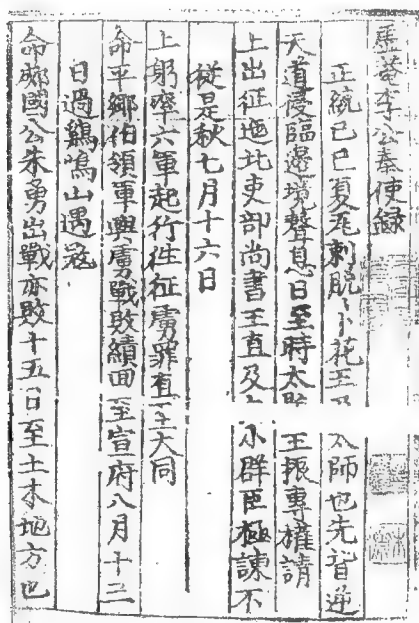 虛菴李公奉使錄
正統己巳夏瓦剌脫〻卜花王及太師也先背逆
天道侵臨邊境聲息日至時太監王振專權請
上出征迤北吏部尚書王直及大小群臣極諫不
從是秋七月十六日
上躬率六軍起行徃征虜罪直至大同
命平鄉伯領軍與虜戰敗績回至宣府八月十三
日過鷄鳴山遇寇
命郕國公朱勇出戰亦敗十五日至土木地方也